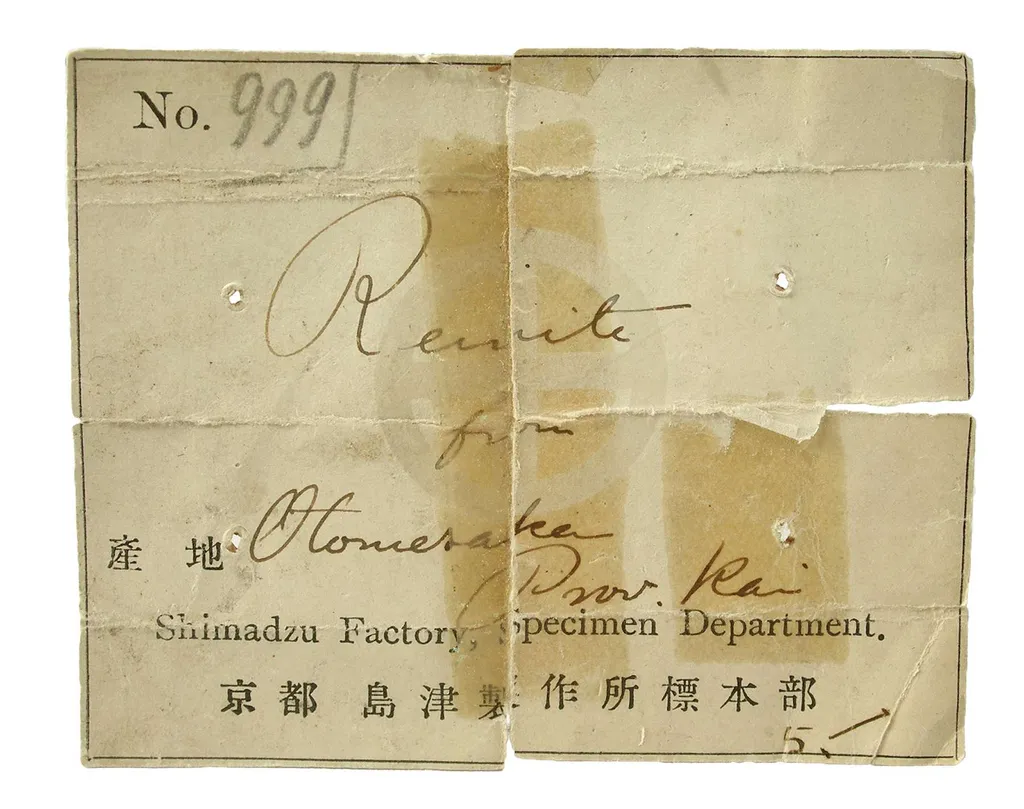 No. 999
Reinite
from
產地 Otomesaka
Prov. Kai
Shimadzu Factory, Specimen Department.
京都 島津製作所標本部
5.